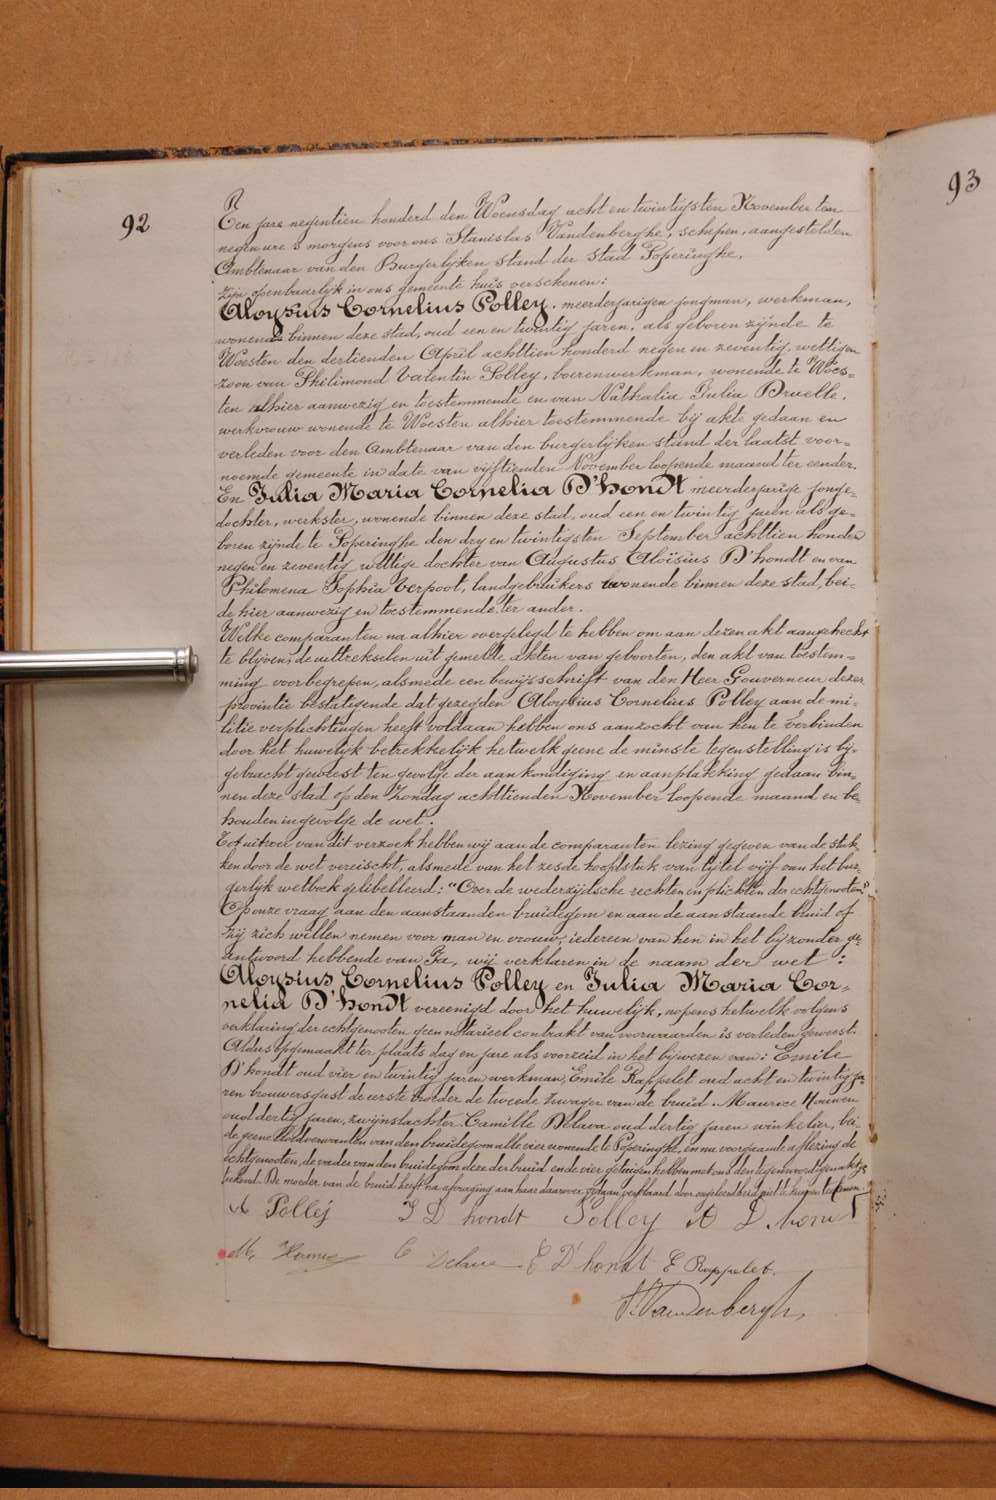 92
93
Een jare negentien honderd den Woensdag acht en twintigsten November ten
negen ure 's morgens voor ons Stanislas Vandenberghe, schepen, aangestelden
Ambtenaar van den Burgerlijken stand der stad Poperinghe,
zijn openbaarlijk in ons gemeente huis verschenen:
Aloysius Cornelius Polley, meerderjarigen jongman, werkman,
wonende binnen deze stad, oud een en twintig jaren, als geboren zijnde te
Woesten den dertienden April achttien honderd negen en zeventig, wettigen
zoon van Philimond Valentin Polley, boerenwerkman, wonende te Woes=
ten alhier aanwezig en toestemmende en van Nathalia Julia Druelle,
werkvrouw wonende te Woesten alhier toestemmende bij akte gedaan en
verleden voor den Ambtenaar van den burgerlijken stand der laatst voor=
noemde gemeente in date van vijftienden November loopende maand ter eender.
En Julia Maria Cornelia D'hondt meerderjarige jonge=
dochter, werkster, wonende binnen deze stad, oud een en twintig jaren als ge=
boren zijnde te Poperinghe den dry en twintigsten September achttien honderd
negen en zeventig wettige dochter van Augustus Aloïsius D'hondt en van
Philomena Sophia Verpoot, landgebruikers wonende binnen deze stad, bei=
de hier aanwezig en toestemmende, ter ander.
Welke comparanten na alhier overgelegd te hebben om aan dezen akt aangehecht
te blijven, de uittrekselen uit gemelde akten van geboorten, den akt van toestem=
ming voorbegrepen, alsmede een bewijsschrift van den Heer Gouverneur dezer
provintie bestatigende dat gezegden Aloysius Cornelius Polley aan de mi=
litie verplichtingen heeft voldaan hebben ons aanzocht van hen te verbinden
door het huwelijk betrekkelijk hetwelk geene de minste tegenstelling is bij=
gebracht geweest ten gevolge der aankondiging en aanplakking gedaan bin=
nen deze stad op den Zondag achttienden November loopende maand en be=
houden ingevolge de wet.
Tot uitvoer van dit verzoek hebben wij aan de comparanten lezing gegeven van de stuk=
ken door de wet vereischt, alsmede van het zesde hoofdstuk van tijtel vijf van het bur=
gerlijk wetboek gelibelleerd: "Over de wederzijdsche rechten en plichten der echtgenooten"
Op onze vraag aan den aanstaanden bruidegom en aan de aanstaande bruid of
zij zich willen nemen voor man en vrouw, iedereen van hen in het bijzonder ge=
antwoord hebbende van Ja, wij verklaren in de naam der wet:
Aloysius Cornelius Polley en Julia Maria Cor=
nelia D'hondt vereenigd door het huwelijk, nopens hetwelk volgens
verklaring der echtgenooten, geen notarieel contrakt van voorwaarden is verleden geweest.
Aldus opgemaakt ter plaats dag en jare als voorzeid in het bijwezen van: Emile
D'hondt oud vier en twintig jaren werkman, Emile Rappelet oud acht en twintig ja=
ren brouwersgast de eerste broeder de tweede zwager van de bruid. Maurice Houwen
oud dertig jaren, zwijnslachter Camille Delava oud dertig jaren winkelier, bei=
de geene bloedverwanten van den bruidegom alle vier wonende te Poperinghe, en na voorgaande aflezing de
echtgenooten, de vader van den bruidegom deze der bruid en de vier getuigen hebben met ons den tegenwoordigen akt ge=
teekend. De moeder van de bruid heeft na afvraging aan haar daarover gedaan verklaard door ongeleerdheid niet te kunnen teekenen.
A Polley J D hondt Polley A D hondt
M. Houwen C Delava E D'hondt E Rappelet.
S. Vandenberghe